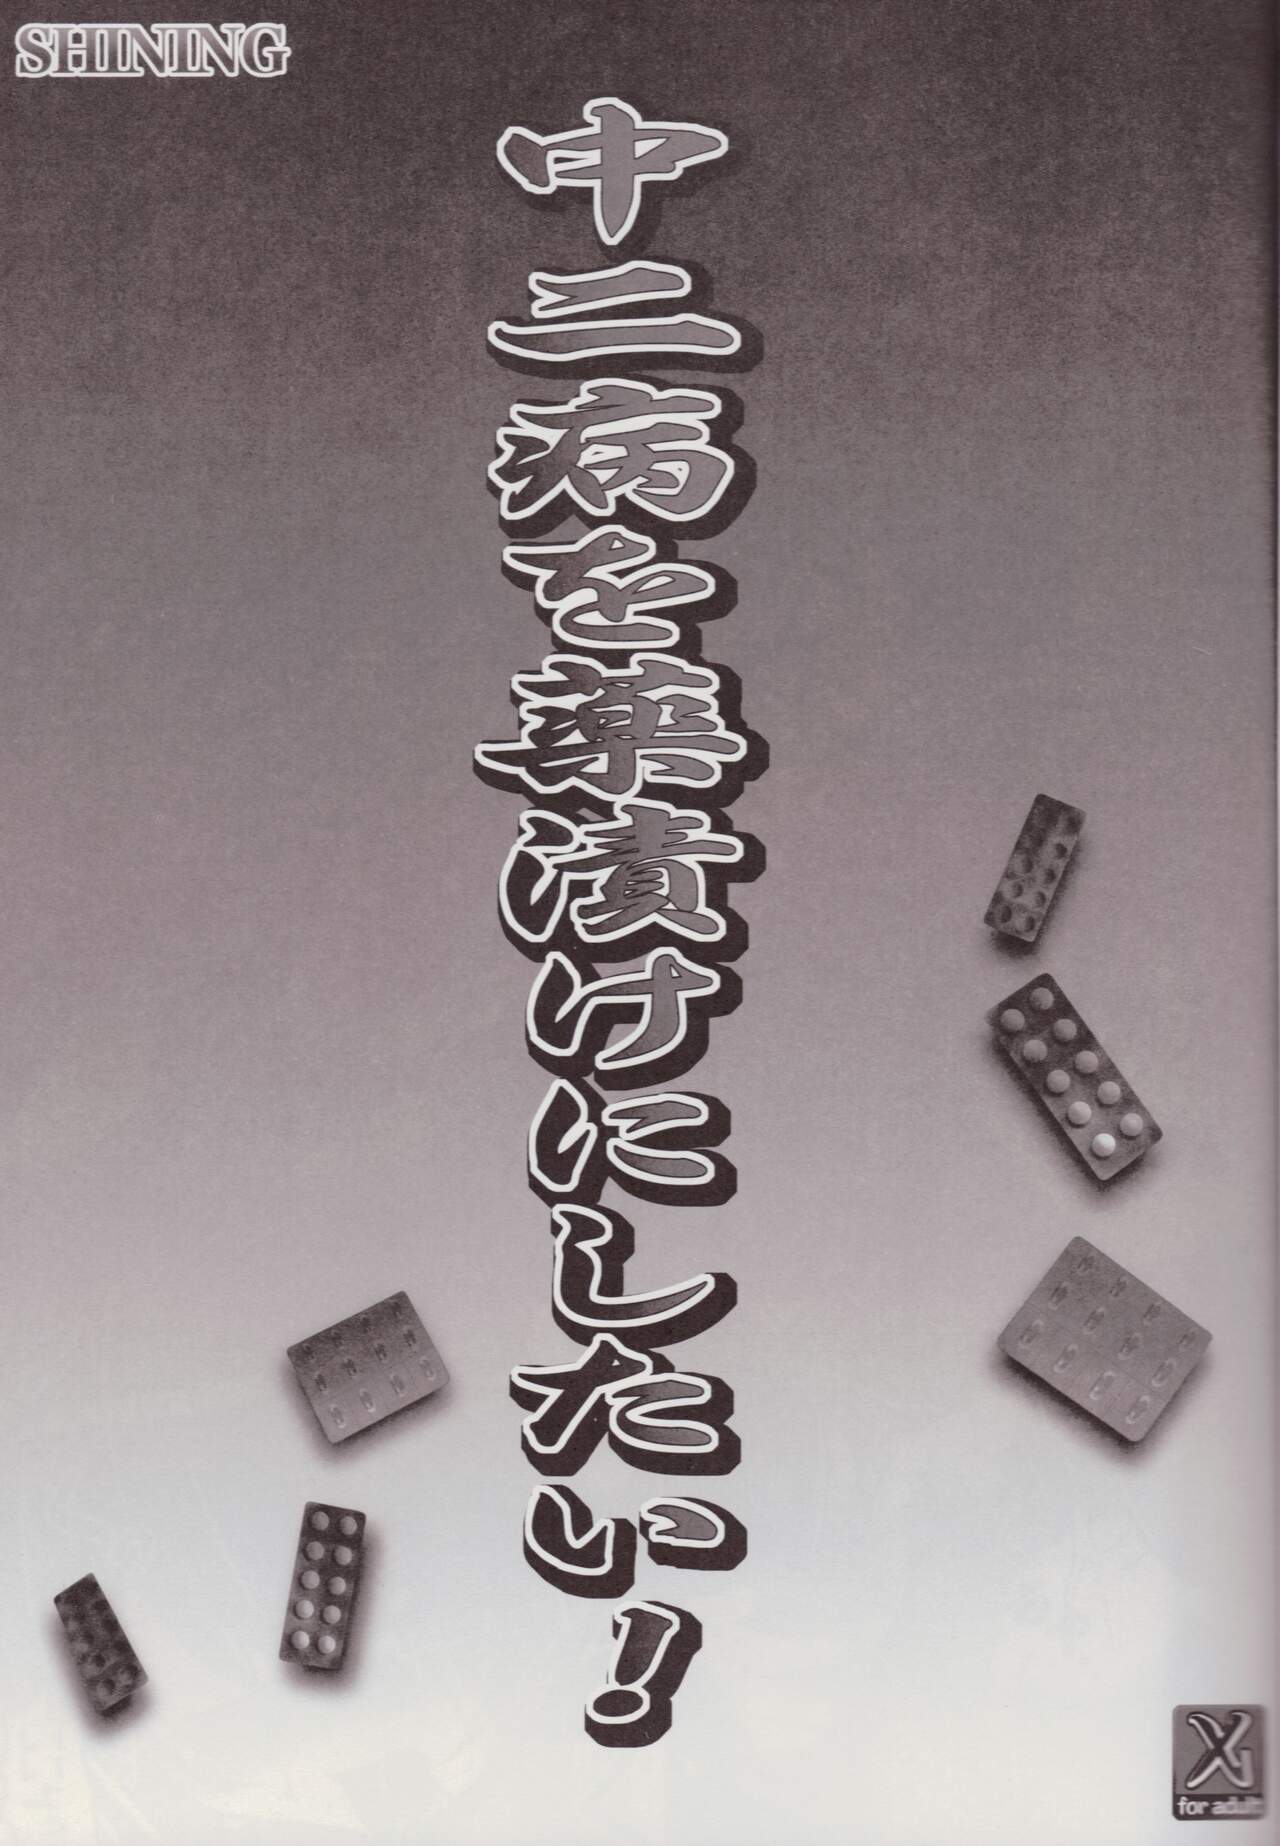 SHINING
中二病を薬漬けにしたい！
X
for adult